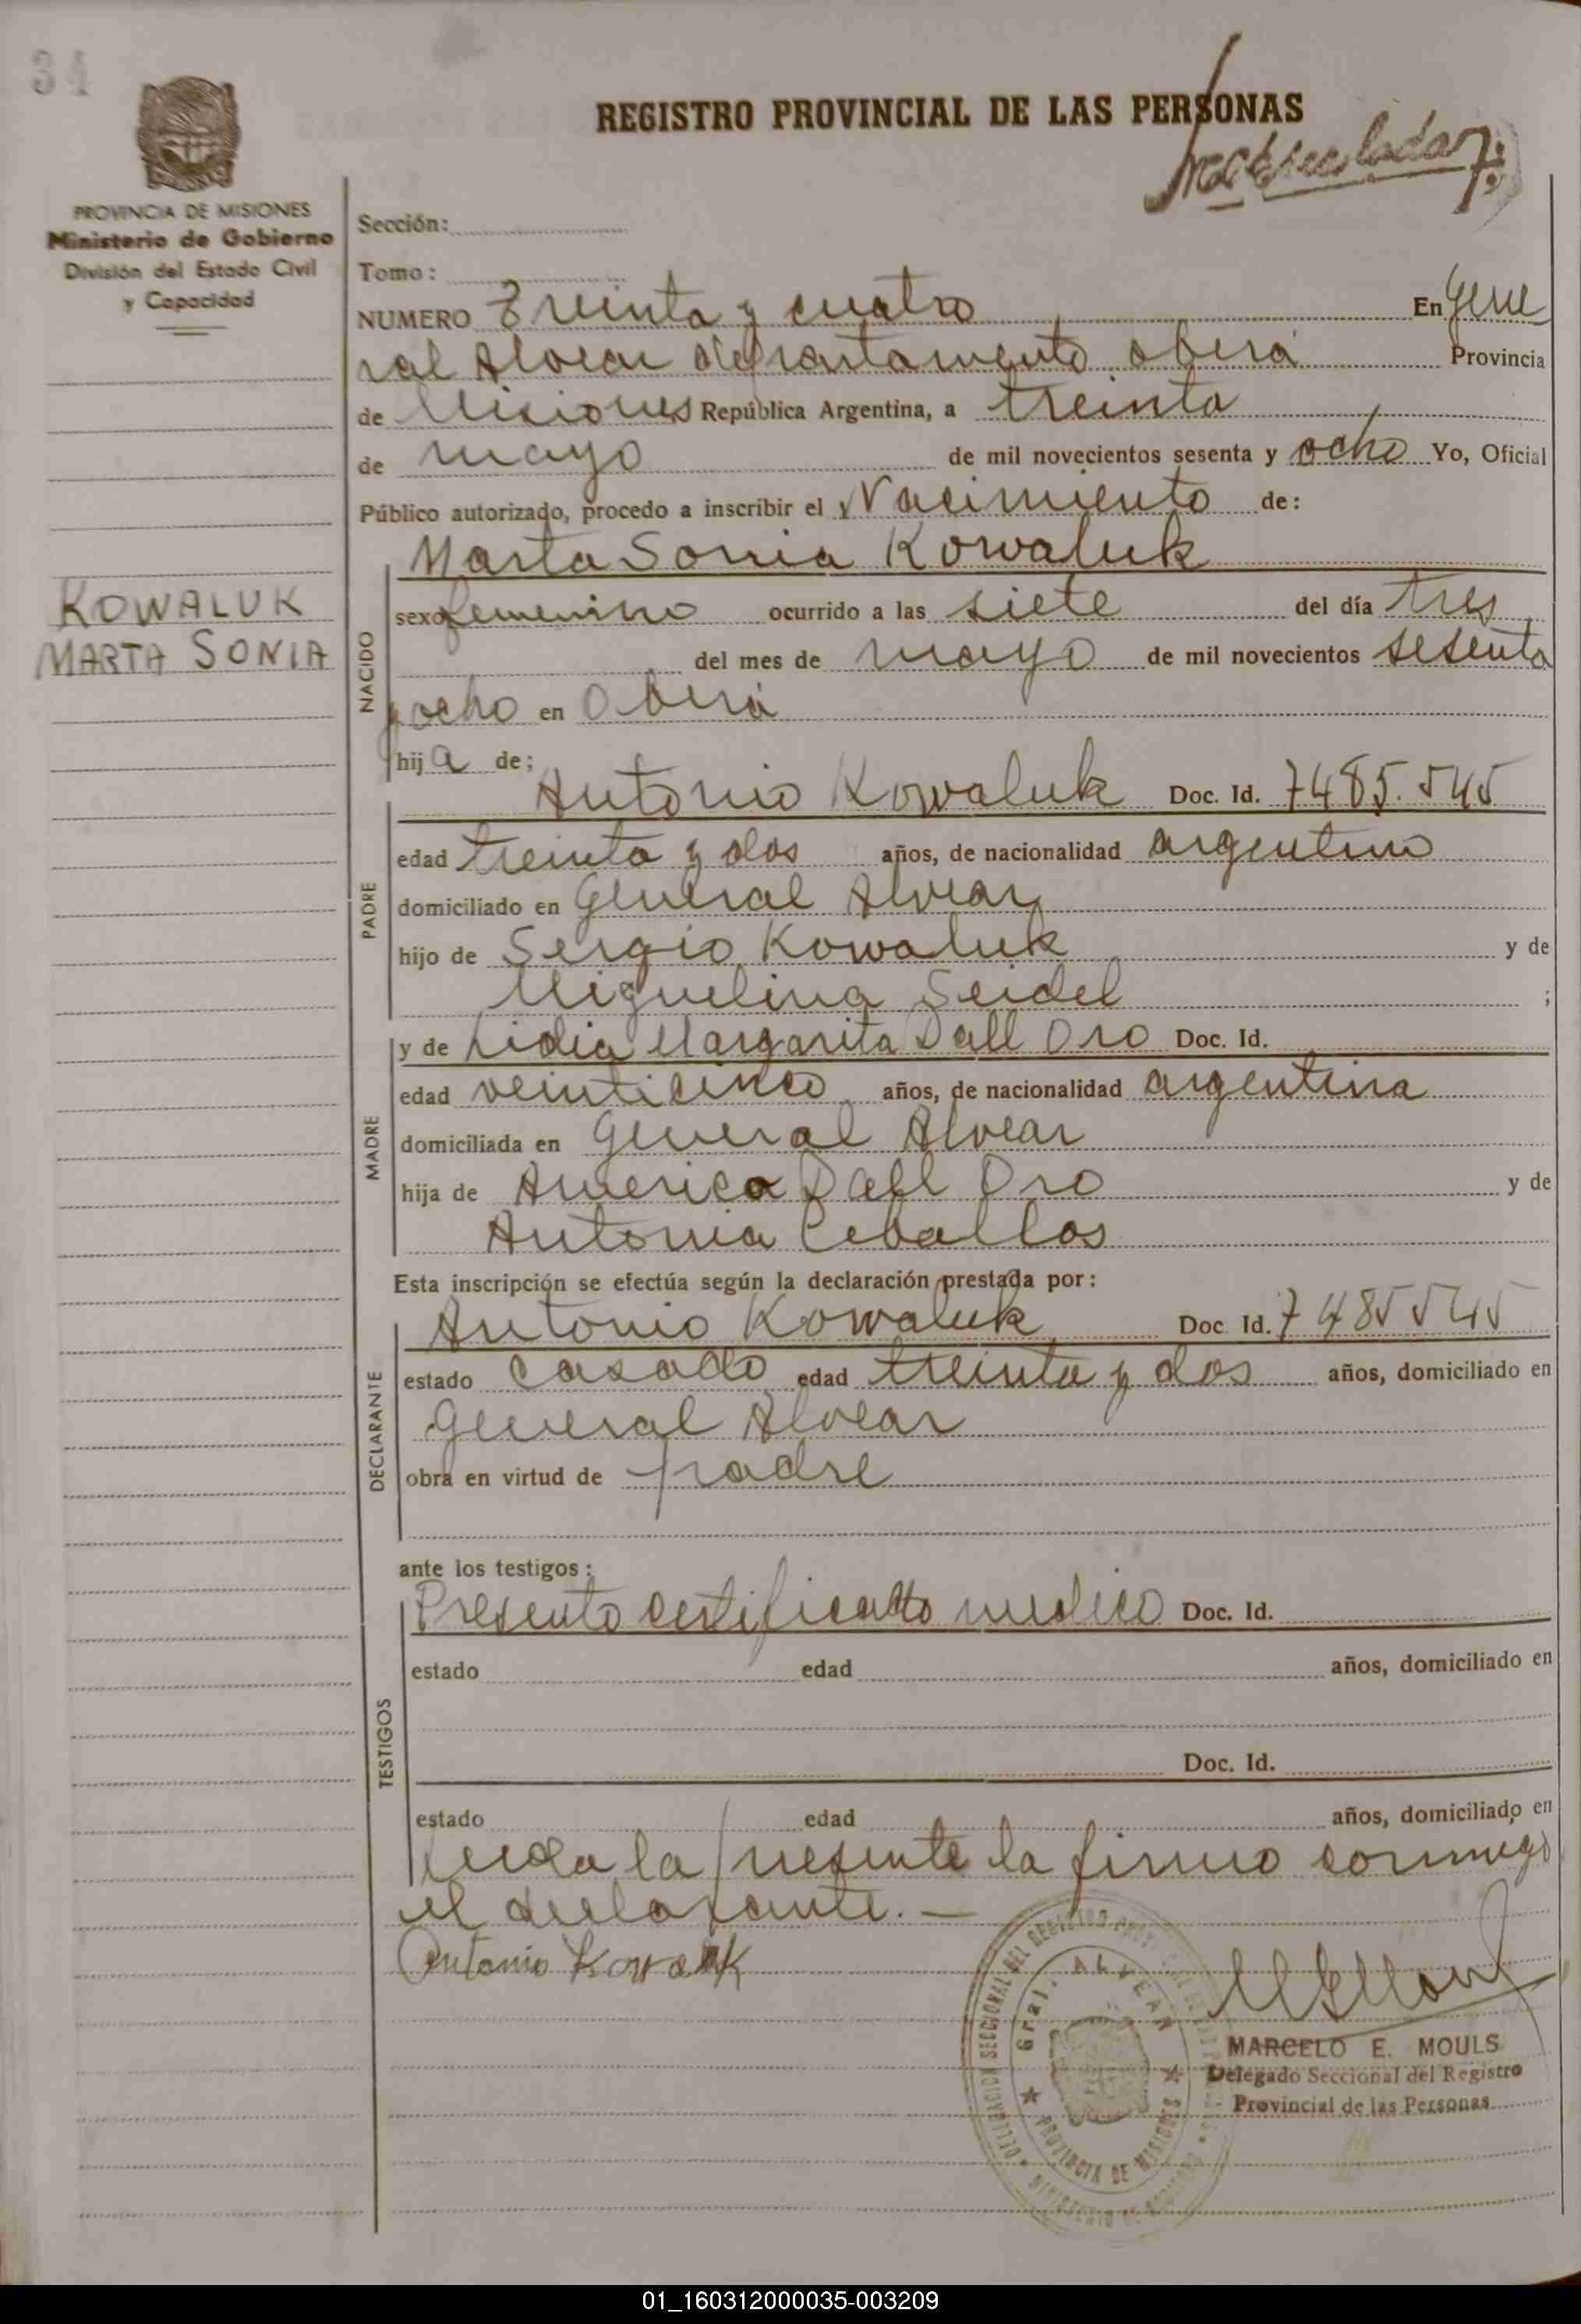 34
REGISTRO PROVINCIAL DE LAS PERSONAS
Matriculada
PROVINCIA DE MISIONES
Ministerio de Gobierno
División del Estado Civil
y Capacidad
Sección:
Tomo:
NUMERO Treinta y cuatro En Gene
ral Alvear departamento oberá Provincia
de Misiones República Argentina, a treinta
de mayo de mil novecientos sesenta y ocho Yo, Oficial
Público autorizado, procedo a inscribir el Nacimiento de:
Marta Sonia Kowaluk
KOWALUK
MARTA SONIA
NACIDO
sexo femenino ocurrido a las siete del día tres
del mes de mayo de mil novecientos sesenta
y ocho en Oberá
hij a de;
PADRE
Antonio Kowaluk Doc. Id. 7485.545
edad treinta y dos años, de nacionalidad argentino
domiciliado en General Alvear
hijo de Sergio Kowaluk y de
Miguelina Seidel ;
MADRE
y de Lidia Margarita Dall Oro Doc. Id.
edad veinticinco años, de nacionalidad argentina
domiciliada en General Alvear
hija de Americo Dall Oro y de
Antonia Ceballos
Esta inscripción se efectúa según la declaración prestada por:
DECLARANTE
Antonio Kowaluk Doc. Id. 7485545
estado casado edad treinta y dos años, domiciliado en
General Alvear
obra en virtud de padre
ante los testigos:
TESTIGOS
Presento certificado medico Doc. Id.
estado edad años, domiciliado en
Doc. Id.
estado edad años, domiciliado en
Leida la presente la firmo conmigo
el declarante.—
Antonio Kowaluk
DELEGACION SECCIONAL DEL REGISTRO
Gral. ALVEAR
PROVINCIA DE MISIONES
MARCELO E. MOULS
Delegado Seccional del Registro
Provincial de las Personas
01_160312000035-003209